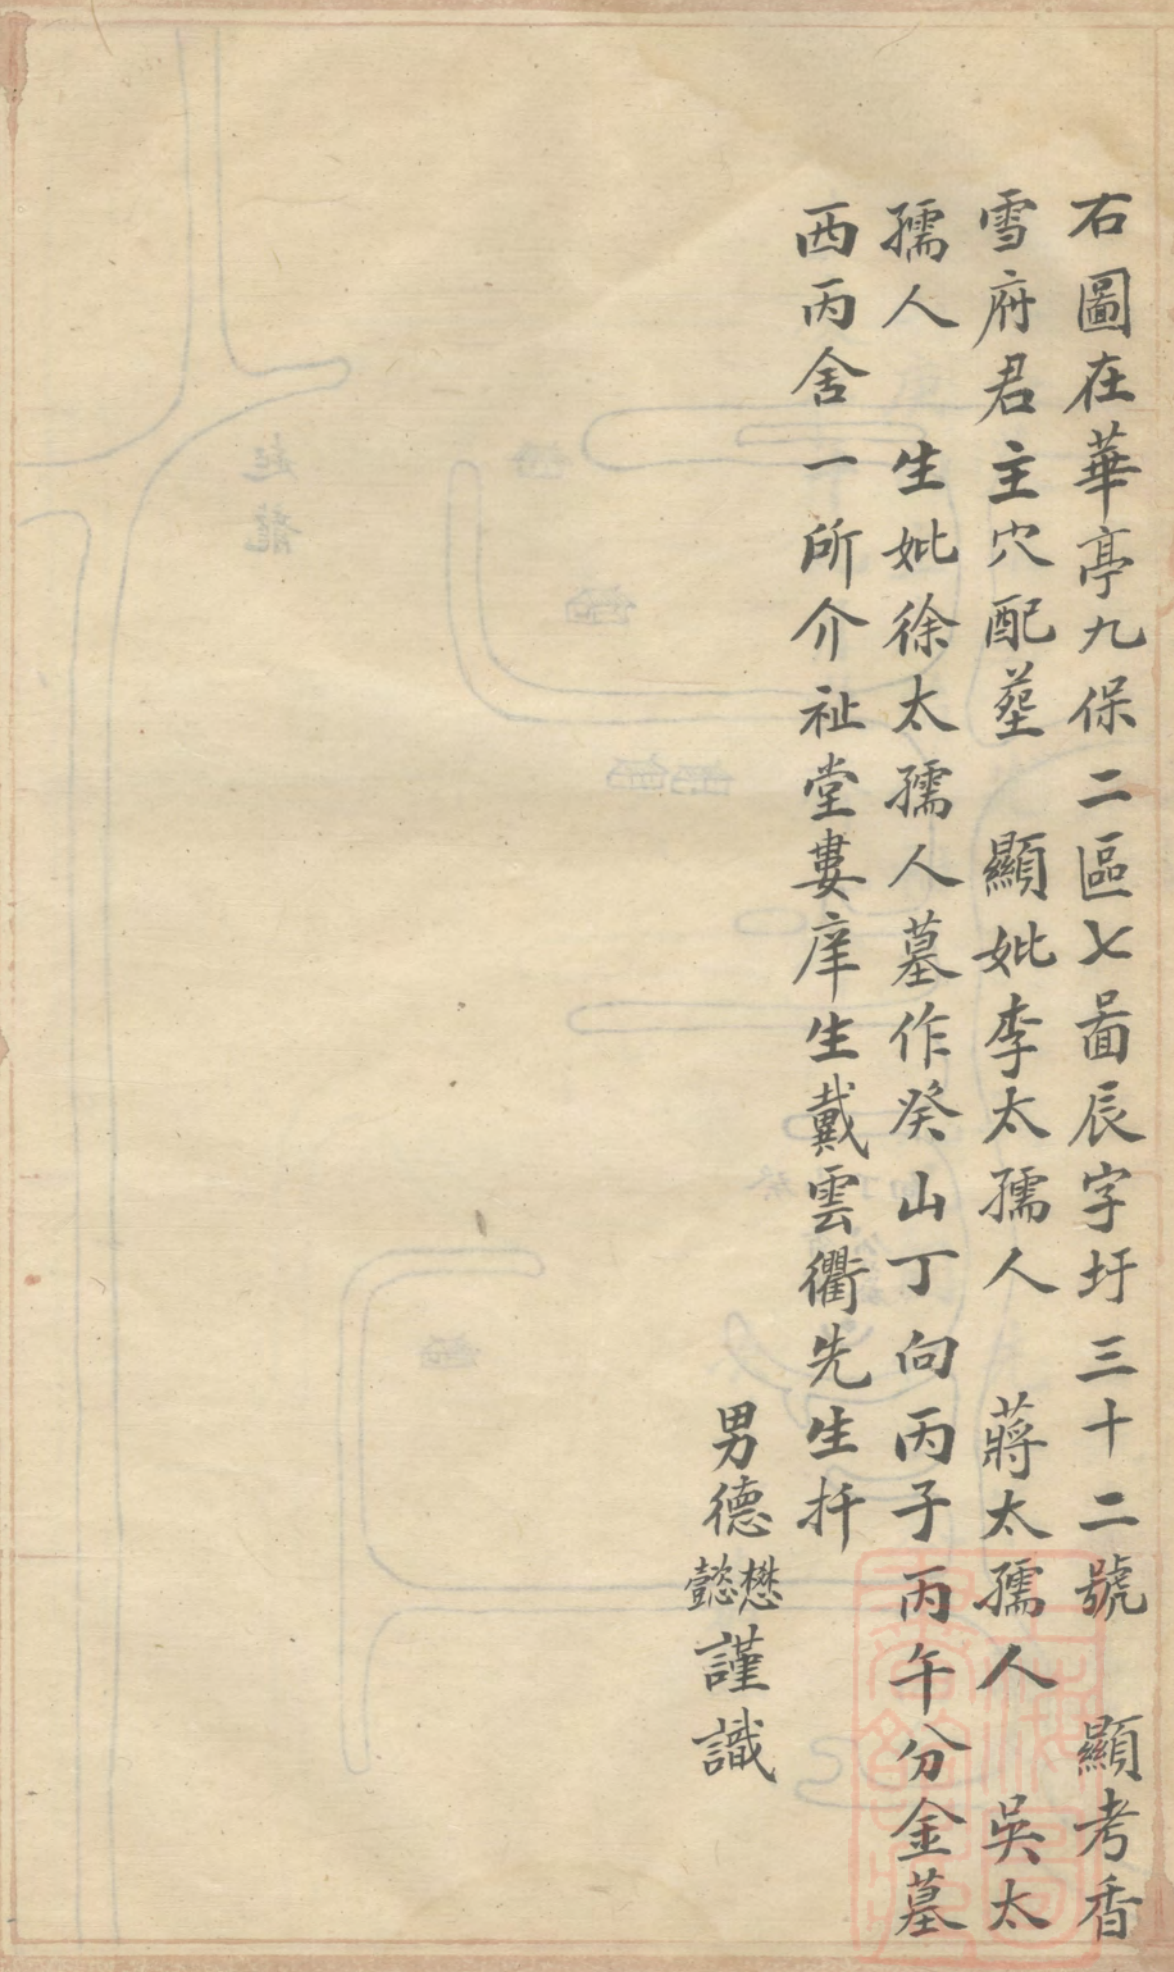 右圖在華亭九保二區七啚辰字圩三十二號　顯考香
雪府君主穴配塟　顯妣李太孺人　蔣太孺人　吳太
孺人　生妣徐太孺人墓作癸山丁向丙子丙午分金墓
西丙舍一所介祉堂婁庠生戴雲衢先生扦
男德懋懿謹識
起龍